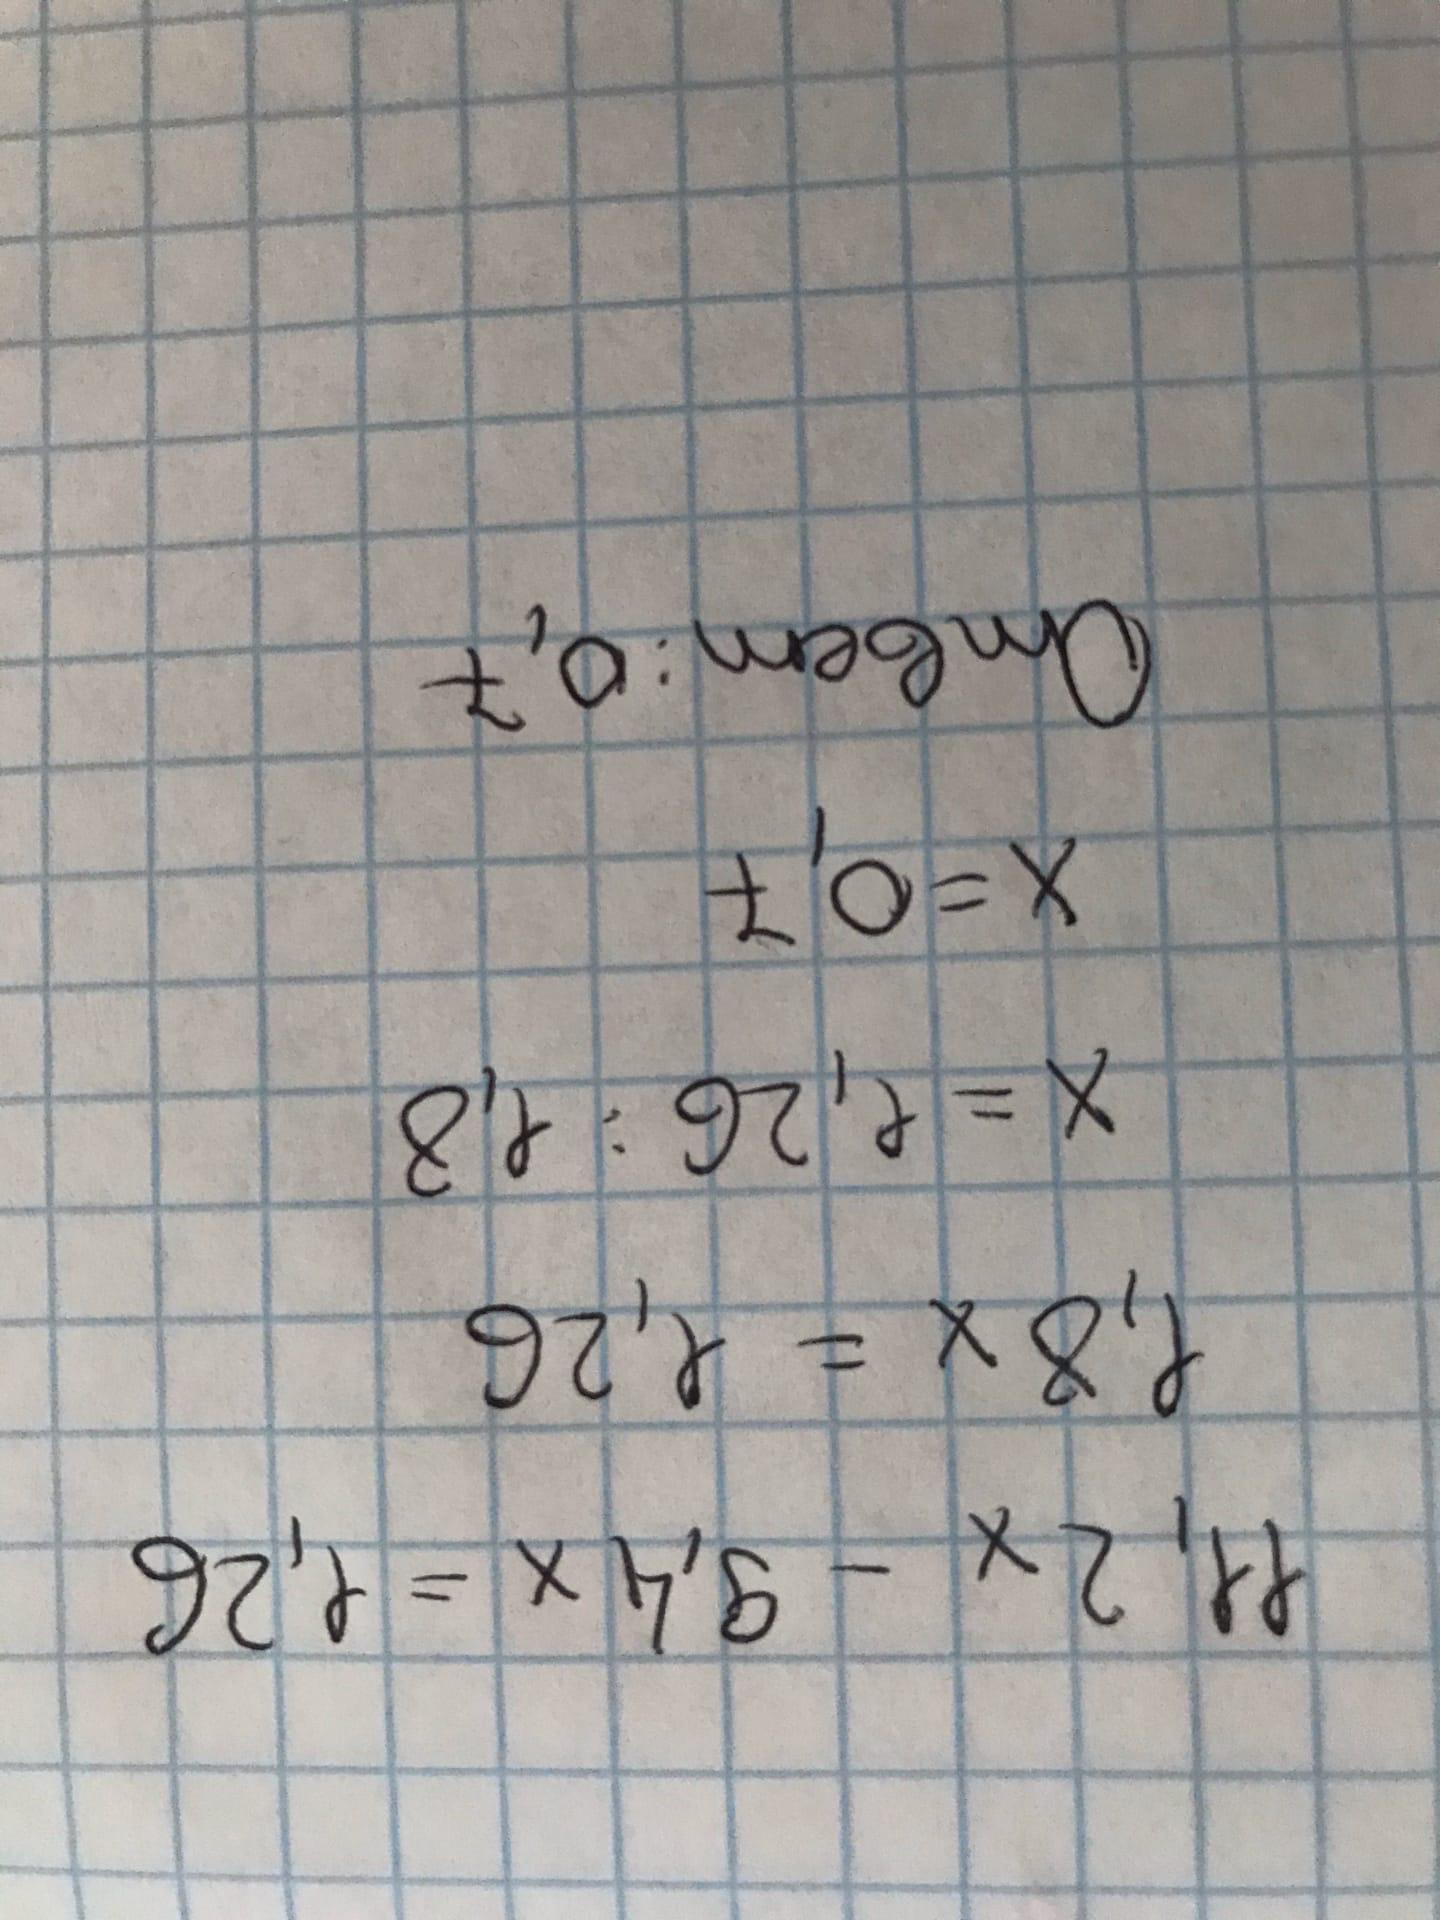 11,2x - 9,4x = 1,26
1,8x = 1,26
x = 1,26 : 1,8
x = 0,7
Ответ: 0,7